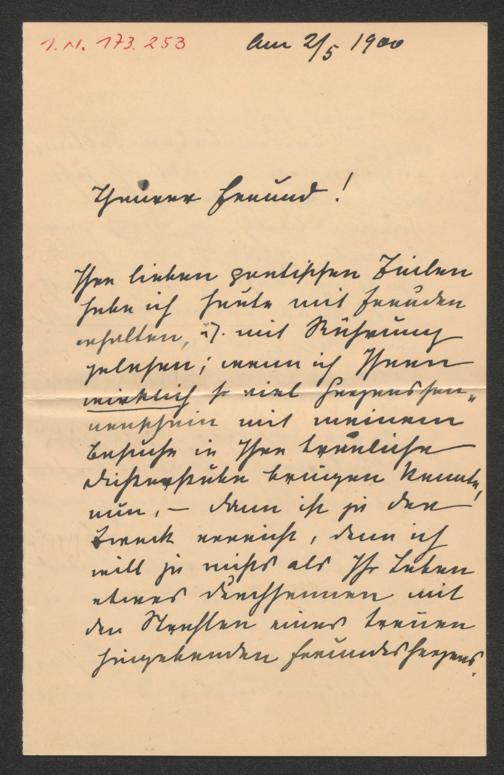 I. N. 173.253
Am 2/5 1900
Theurer Freund!
Ihre lieben poetischen Zeilen
habe ich heute mit Freuden
erhalten, u. mit Rührung
gelesen; wenn ich Ihnen
wirklich so viel Herzensson-
nenschein mit meinem
Besuche in Ihre trauliche
Dichterstube bringen konnte,
nun, – dann ist ja der
Zweck erreicht, denn ich
will ja nichts als Ihr Leben
etwas durchsonnen mit
den Strahlen eines treuen
hingebenden Freundesherzens.